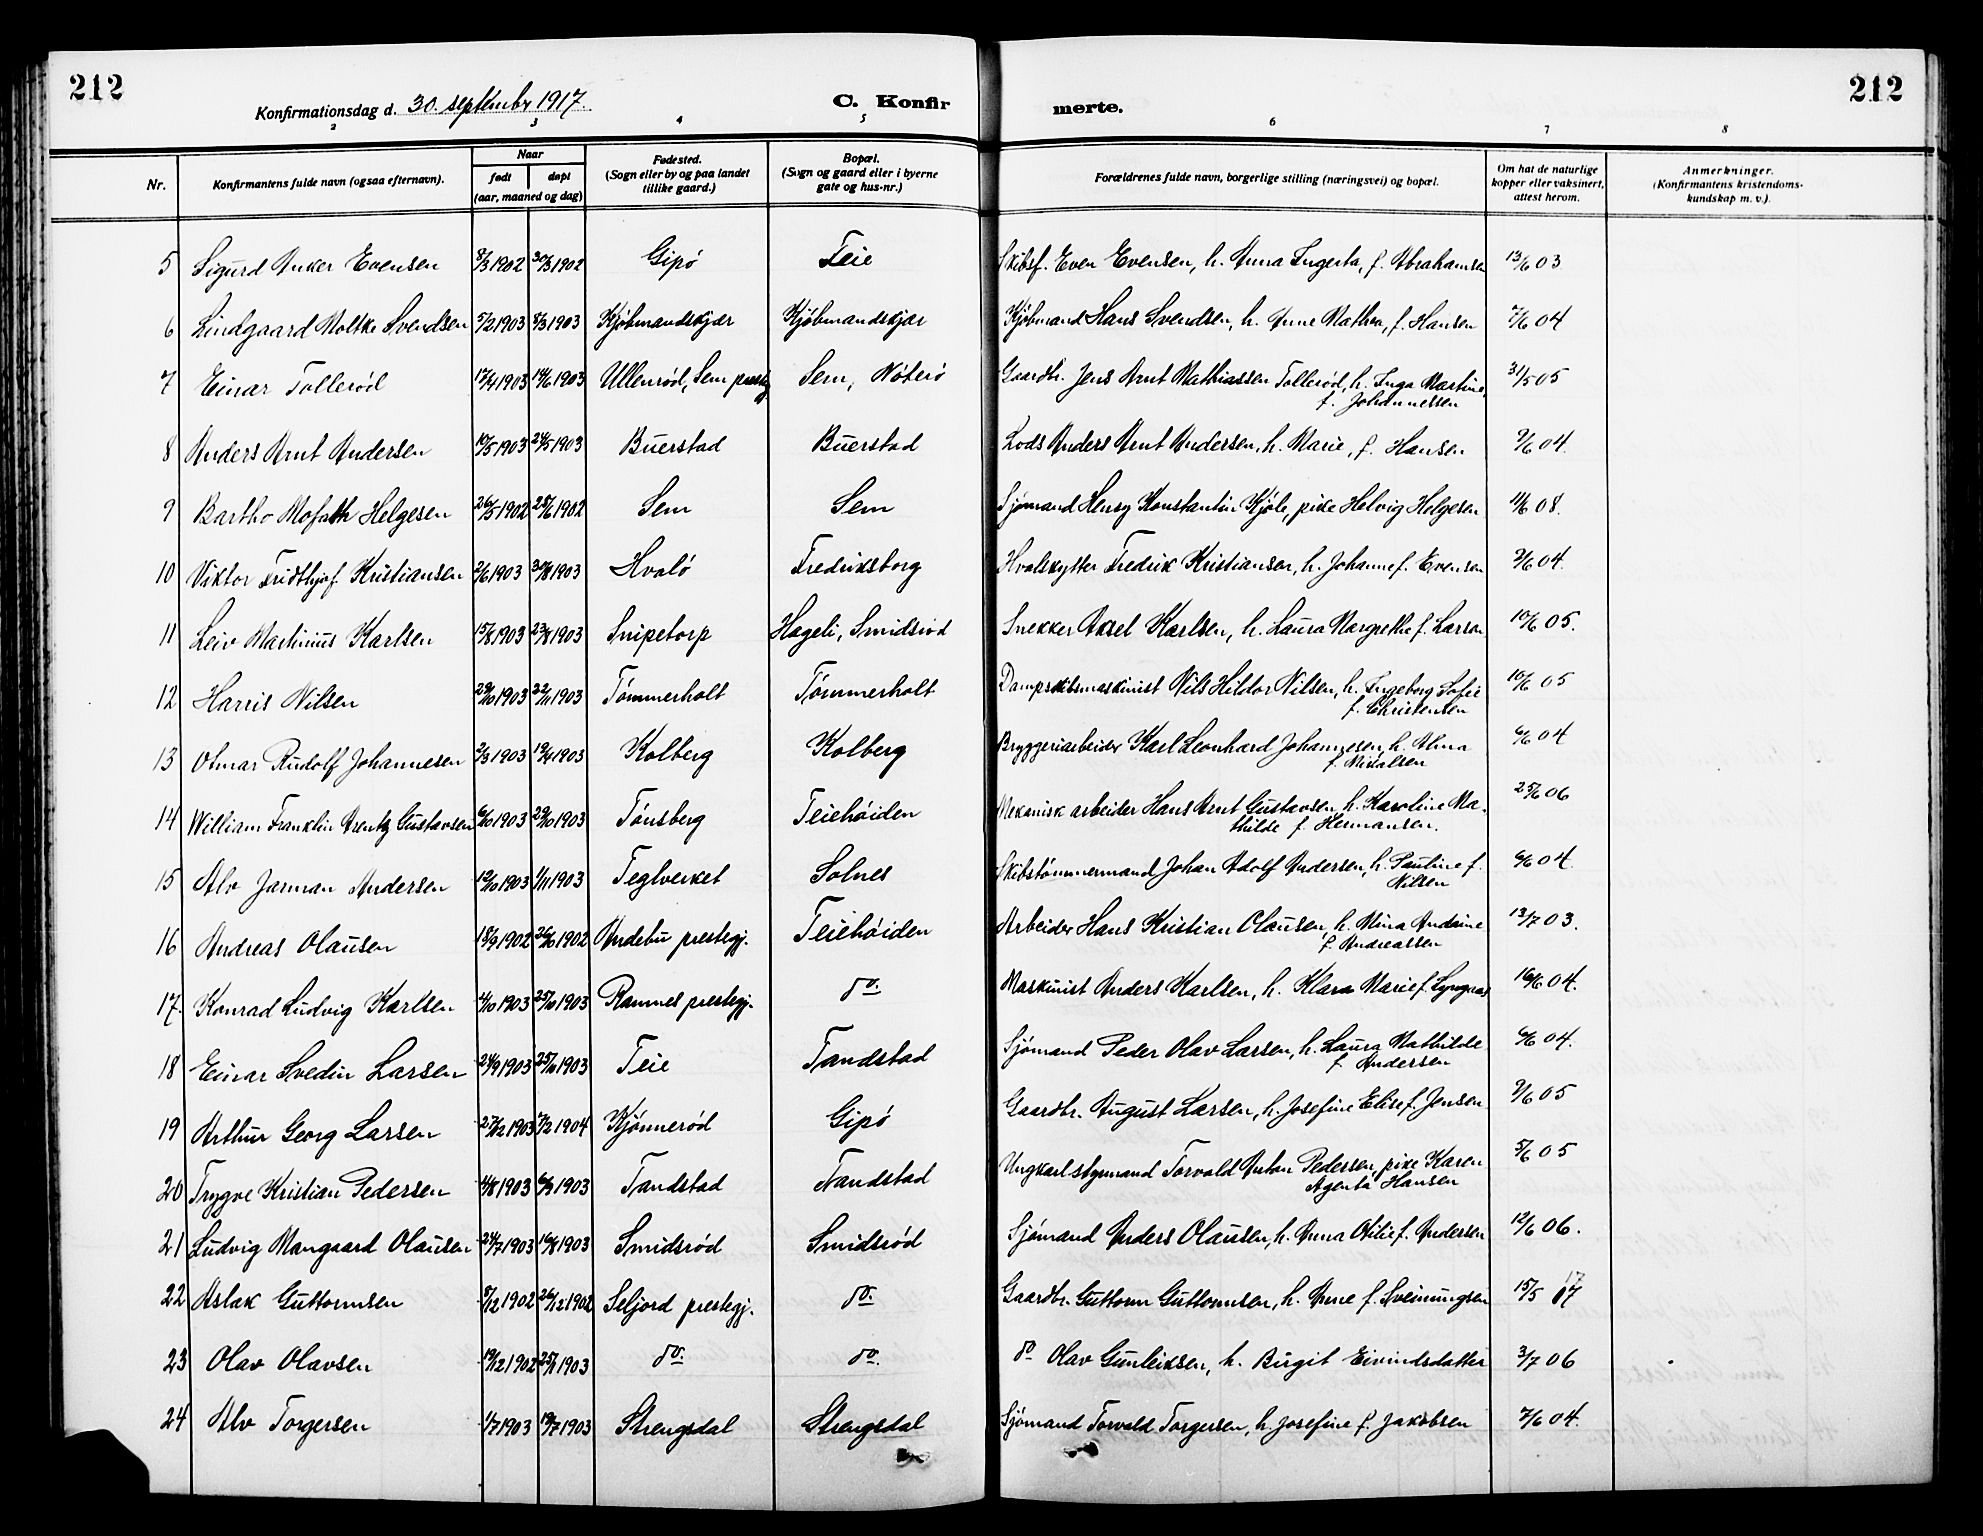 212
Konfirmationsdag d. 30. september 1917.
C. Konfir
merte.
212
2 3 4 5 6 7 8
Nr.
Konfirmantens fulde navn (ogsaa efternavn).
Naar
født
døpt
(aar, maaned og dag)
Fødested.
(Sogn eller by og paa landet
tillike gaard.)
Bopæl.
(Sogn og gaard eller i byerne
gate og hus-nr.)
Forældrenes fulde navn, borgerlige stilling (næringsvei) og bopæl.
Om hat de naturlige
kopper eller vaksinert,
attest herom.
Anmerkninger.
(Konfirmantens kristendoms-
kundskap m. v.).
5 Sigurd Anker Evensen 8/3 1902 30/3 1902 Gipø Teie Skibsf. Even Evensen, h. Anna Ingerta, f. Abrahamsen 13/6 03
6 Lindgaard Moltke Svendsen 5/2 1903 8/3 1903 Kjøbmandskjær Kjøbmandskjær Kjøbmand Hans Svendsen, h. Anne Mathea, f. Hansen 7/6 04
7 Einar Tollerød 17/4 1903 14/6 1903 Ullenrød, Sem prestgj Sem, Nøterø Gaardbr. Jens Arnt Mathiassen Tollerød, h. Inga Martine, 31/5 05
f. Johannessen
8 Anders Arnt Andersen 10/5 1903 24/5 1903 Buerstad Buerstad Lods Anders Arnt Andersen, h. Marie, f. Hansen 9/6 04.
9 Bartho Helgesen 26/5 1902 25/6 1902 Sem Sem Sjømand Henry Konstantin Kjøle, pike Helvig Helgesen 11/6 08.
10 Viktor Fridthjof Kristiansen 2/6 1903 30/8 1903 Hvalø Fredriksborg Hvalskytter Fredrik Kristiansen, h. Johanne f. Evensen 9/6 04.
11 Leiv Martinius Karlsen 15/8 1903 23/8 1903 Snipetorp Hageli, Smidsrød Snekker Aksel Karlsen, h. Laura Margrethe f. Larsen 10/6 05.
12 Harris Nilsen 29/10 1903 22/11 1903 Tømmerholt Tømmerholt Dampskibsmaskinist Nils Hildor Nilsen, h. Ingeborg Sofie 10/6 05
f. Christensen
13 Olmar Rudolf Johannesen 2/3 1903 19/4 1903 Kolberg Kolberg Bryggeriarbeider Karl Leonhard Johannesen, h. Alma 6/6 04
f. Mikalsen
14 William Franklin Arentz Gustavsen 6/10 1903 29/10 1903 Tønsberg Teiehøiden Mekanisk arbeider Hans Arnt Gustavsen, h. Karoline Ma- 25/6 06
thilde f. Hermansen.
15 Alv Jarman Andersen 12/10 1903 1/11 1903 Teglverket Solnes Skibstømmermand Johan Adolf Andersen, h. Pauline f. 6/6 04.
Nilsen
16 Andreas Olausen 18/9 1902 26/10 1902 Andebu prestegj. Teiehøiden Arbeider Hans Kristian Olausen, h. Mina Andrine 13/7 03.
f. Andreassen
17. Konrad Ludvig Karlsen 4/10 1903 25/10 1903 Ramnes prestegj. do. Maskinist Anders Karlsen, h. Klara Marie f. Lyngaas 16/6 04.
18 Einar Svedin Larsen 24/9 1903 25/10 1903 Teie Tandstad Sjømand Peder Olav Larsen, h. Laura Mathilde 6/6 04.
f. Andersen
19 Arthur Georg Larsen 27/12 1903 7/2 1904 Kjønnerød Gipø Gaardbr. August Larsen, h. Josefine Elise f. Jensen 9/6 05
20 Trygve Kristian Pedersen 4/8 1903 6/9 1903 Tandstad Tandstad Ungkarl styrmand Torvald Anton Pedersen, pike Karen 5/6 05
Agenta Hansen
21 Ludvig Mangaard Olausen 24/7 1903 16/8 1903 Smidsrød Smidsrød Sjømand Anders Olausen, h. Anna Otilie f. Andersen 12/6 06.
22 Aslak Guttormsen 5/12 1902 26/12 1902 Seljord prestegj. do. Gaardbr. Guttorm Guttormsen, h. Anne f. Sveinungsen 15/5 17
23 Olav Olavsen 19/12 1902 25/1 1903 do. do. do Olav Gunleiksen, h. Birgit Eivindsdatter 3/7 06
24 Alv Torgersen 1/7 1903 19/7 1903 Strengsdal Strengsdal Sjømand Torvald Torgersen, h. Josefine f. Jakobsen 7/6 04.